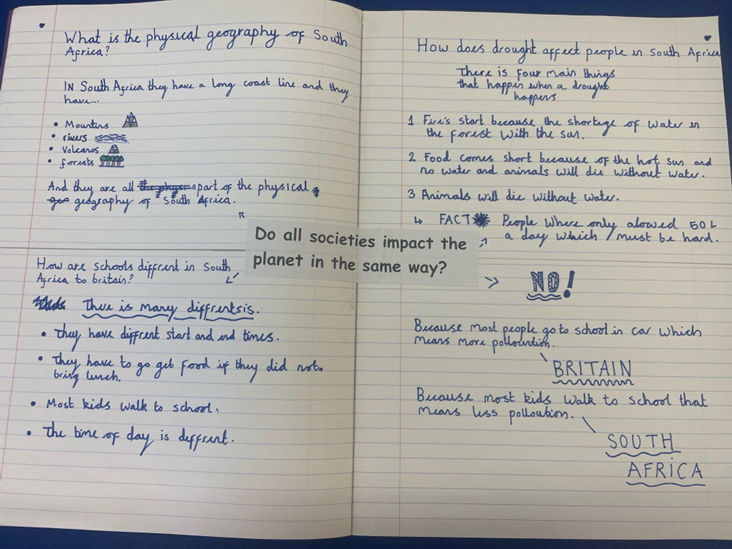 What is the physical geography of South
Africa?
IN South Africa they have a long coast line and they
have...
• Mountins
• rivers
• Volcanos
• forests
And they are all part of the physical
geography of South Africa.
How are schools diffrent in South
Africa to britain?
Thre is many diffrentsis.
• They have diffrent start and end times.
• They have to go get food if they did not
bring lunch.
• Most kids walk to school.
• The time of day is diffrent.
Do all societies impact the
planet in the same way?
How does drought affect people in South Africa
There is four main things
that happen when a drought
happens
1 Fire's start because the shortege of water in
the forest with the sun.
2 Food comes short because of the hot sun and
no water and animals will die without water.
3 Animals will die without water.
4 FACT People where only alowed 50L
a day which must be hard.
NO!
Because most people go to school in car which
means more polloution.
BRITAIN
Because most kids walk to school that
means less polloution.
SOUTH
AFRICA